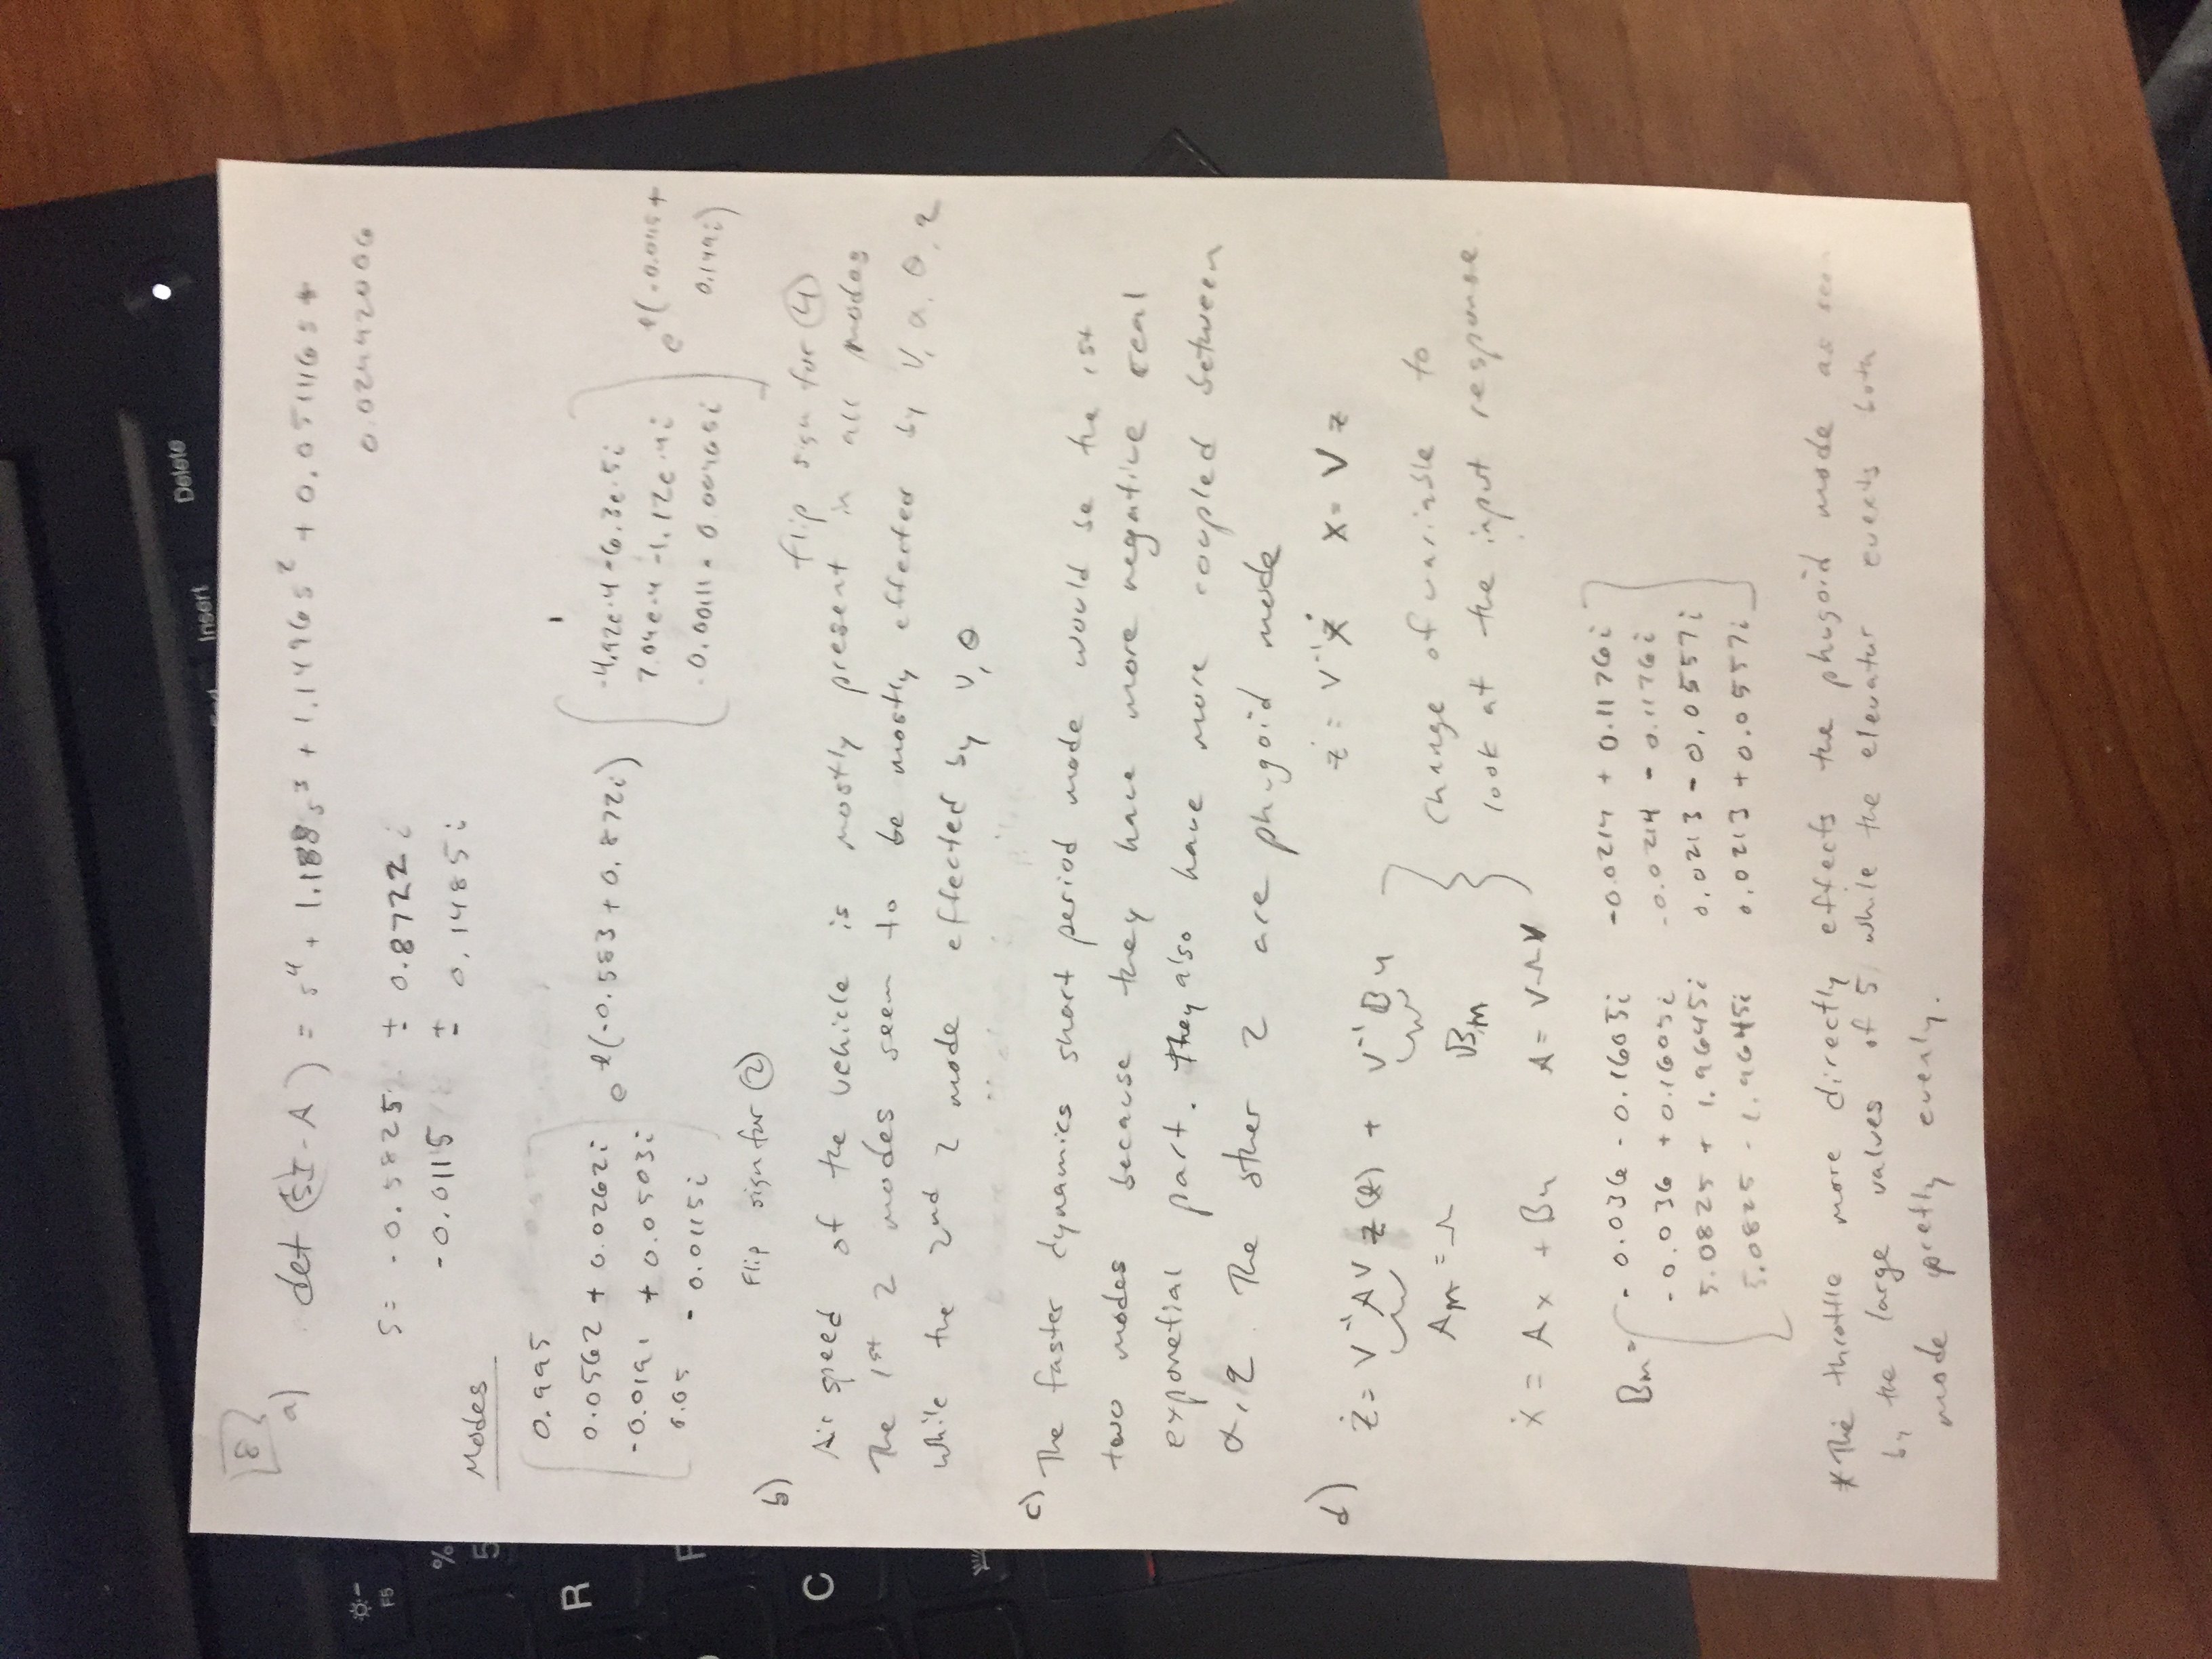 Delete
Insert
End
F5
%
5
R
F
C
8
a) det (sI - A) = s⁴ + 1.188s³ + 1.1496s² + 0.051116s +
0.02442006
s = -0.5825 ± 0.8722i
-0.0115 ± 0.1485i
Modes
0.995
0.0562 + 0.0262i
-0.0191 + 0.0503i
0.05 - 0.0115i
e^t(-0.583 + 0.872i)
1
-4.92e-4 -6.3e-5i
7.04e-4 -1.12e-4i
e^t(-0.0115 +
0.149i)
Flip sign for ②
flip sign for ④
b)
Air speed of the vehicle is mostly present in all modes
The 1st 2 modes seem to be mostly effected by V, α, θ, q
while the 2nd 2 mode effected by V, θ
c) The faster dynamics short period mode would be the 1st
two modes because they have more negative real
exponetial part. They also have more coupled between
α, q. The other 2 are phugoid mode
d) ż = V⁻¹AV z(t) + V⁻¹Bu
ż = V⁻¹ẋ x = Vz
A_m = Λ
B_m
change of variable to
look at the input response.
ẋ = Ax + Bu A = VΛV
B_m =
-0.036 - 0.1605i -0.0214 + 0.1176i
-0.036 + 0.1605i -0.0214 - 0.1176i
5.0825 + 1.9645i 0.0213 - 0.0557i
5.0825 - 1.9645i 0.0213 + 0.0557i
* The throttle more directly effects the phugoid mode as seen
by the large values of 5 while the elevatur both
mode pretty evenly.